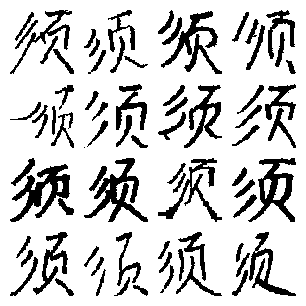 须须须须
须须须须
须须须须
须须须须